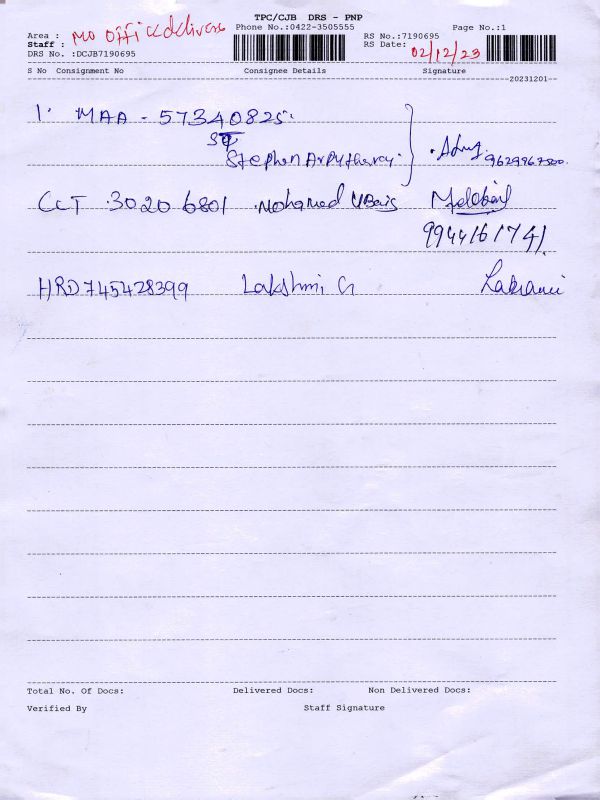 TPC/CJB DRS - PNP
Area : MO Office delivery Phone No.:0422-3505555 RS No.:7190695 Page No.:1
Staff : RS Date: 02/12/23
DRS No. :DCJB7190695
S No Consignment No Consignee Details Signature
20231201
1. MAA - 57340825.
Stephen 9629967500.
CCT 30206801 Mohamed Ubais
9944161741.
HRD745428399 Lakshmi G
Total No. Of Docs: Delivered Docs: Non Delivered Docs:
Verified By Staff Signature